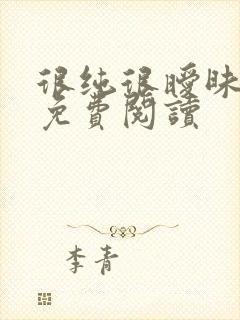 很纯很曖昧
免費閱讀
李青